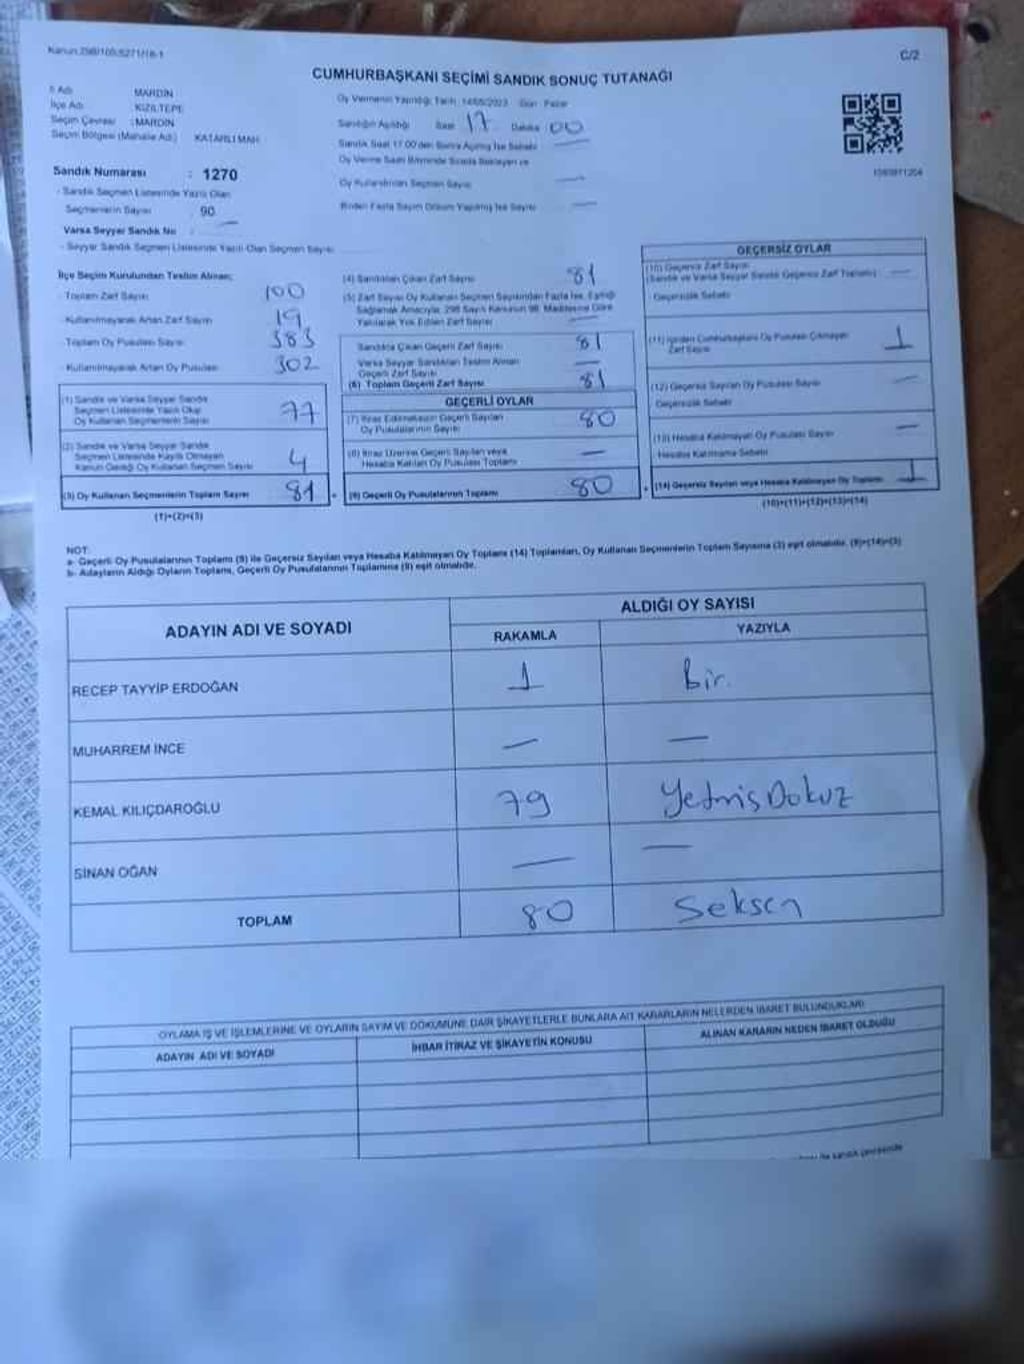 Kanun:298/105;6271/18-1
C/2
CUMHURBAŞKANI SEÇİMİ SANDIK SONUÇ TUTANAĞI
İl Adı MARDİN
İlçe Adı KIZILTEPE
Seçim Çevresi : MARDİN
Seçim Bölgesi (Mahalle Adı) KATARLI MAH.
Sandık Numarası : 1270
- Sandık Seçmen Listesinde Yazılı Olan
Seçmenlerin Sayısı : 90
Varsa Seyyar Sandık No : —
- Seyyar Sandık Seçmen Listesinde Yazılı Olan Seçmen Sayısı
Oy Vermenin Yapıldığı Tarih : 14/05/2023 Gün : Pazar
Sandığın Açıldığı Saat 17 Dakika 00
Sandık Saat 17:00'den Sonra Açılmış İse Sebebi —
Oy Verme Saati Bitiminde Sırada Bekleyen ve
Oy Kullandırılan Seçmen Sayısı —
Birden Fazla Sayım Döküm Yapılmış İse Sayısı —
İlçe Seçim Kurulundan Teslim Alınan;
- Toplam Zarf Sayısı 100
- Kullanılmayarak Artan Zarf Sayısı 19
- Toplam Oy Pusulası Sayısı 383
- Kullanılmayarak Artan Oy Pusulası 302
(1) Sandık ve Varsa Seyyar Sandık
Seçmen Listesinde Yazılı Olup
Oy Kullanan Seçmenlerin Sayısı 77
(2) Sandık ve Varsa Seyyar Sandık
Seçmen Listesinde Kayıtlı Olmayan
Kanun Gereği Oy Kullanan Seçmen Sayısı 4
(3) Oy Kullanan Seçmenlerin Toplam Sayısı 81
(1)+(2)=(3)
(4) Sandıktan Çıkan Zarf Sayısı 81
(5) Zarf Sayısı Oy Kullanan Seçmen Sayısından Fazla İse, Eşitliği
Sağlamak Amacıyla, 298 Sayılı Kanunun 98. Maddesine Göre
Yakılarak Yok Edilen Zarf Sayısı —
Sandıkta Çıkan Geçerli Zarf Sayısı 81
Varsa Seyyar Sandıktan Teslim Alınan
Geçerli Zarf Sayısı —
(6) Toplam Geçerli Zarf Sayısı 81
GEÇERLİ OYLAR
(7) İtiraz Edilmeksizin Geçerli Sayılan
Oy Pusulalarının Sayısı 80
(8) İtiraz Üzerine Geçerli Sayılan veya
Hesaba Katılan Oy Pusulası Toplamı —
(9) Geçerli Oy Pusulalarının Toplamı 80
GEÇERSİZ OYLAR
(10) Geçersiz Zarf Sayısı
(Sandık ve Varsa Seyyar Sandık Geçersiz Zarf Toplamı) —
Geçersizlik Sebebi
(11) İçinden Cumhurbaşkanı Oy Pusulası Çıkmayan
Zarf Sayısı 1
(12) Geçersiz Sayılan Oy Pusulası Sayısı —
Geçersizlik Sebebi
(13) Hesaba Katılmayan Oy Pusulası Sayısı —
Hesaba Katılmama Sebebi
(14) Geçersiz Sayılan veya Hesaba Katılmayan Oy Toplamı 1
(10)+(11)+(12)+(13)=(14)
NOT:
a- Geçerli Oy Pusulalarının Toplamı (9) ile Geçersiz Sayılan veya Hesaba Katılmayan Oy Toplamı (14) Toplamları, Oy Kullanan Seçmenlerin Toplam Sayısına (3) eşit olmalıdır. (9)+(14)=(3)
b- Adayların Aldığı Oyların Toplamı, Geçerli Oy Pusulalarının Toplamına (9) eşit olmalıdır.
ADAYIN ADI VE SOYADI
ALDIĞI OY SAYISI
RAKAMLA YAZIYLA
RECEP TAYYİP ERDOĞAN 1 Bir.
MUHARREM İNCE — —
KEMAL KILIÇDAROĞLU 79 YetmişDokuz
SİNAN OĞAN — —
TOPLAM 80 Seksen
OYLAMA İŞ VE İŞLEMLERİNE VE OYLARIN SAYIM VE DÖKÜMÜNE DAİR ŞİKAYETLERLE BUNLARA AİT KARARLARIN NELERDEN İBARET BULUNDUKLARI
ADAYIN ADI VE SOYADI İHBAR İTİRAZ VE ŞİKAYETİN KONUSU ALINAN KARARIN NEDEN İBARET OLDUĞU
ile sandık çevresinde